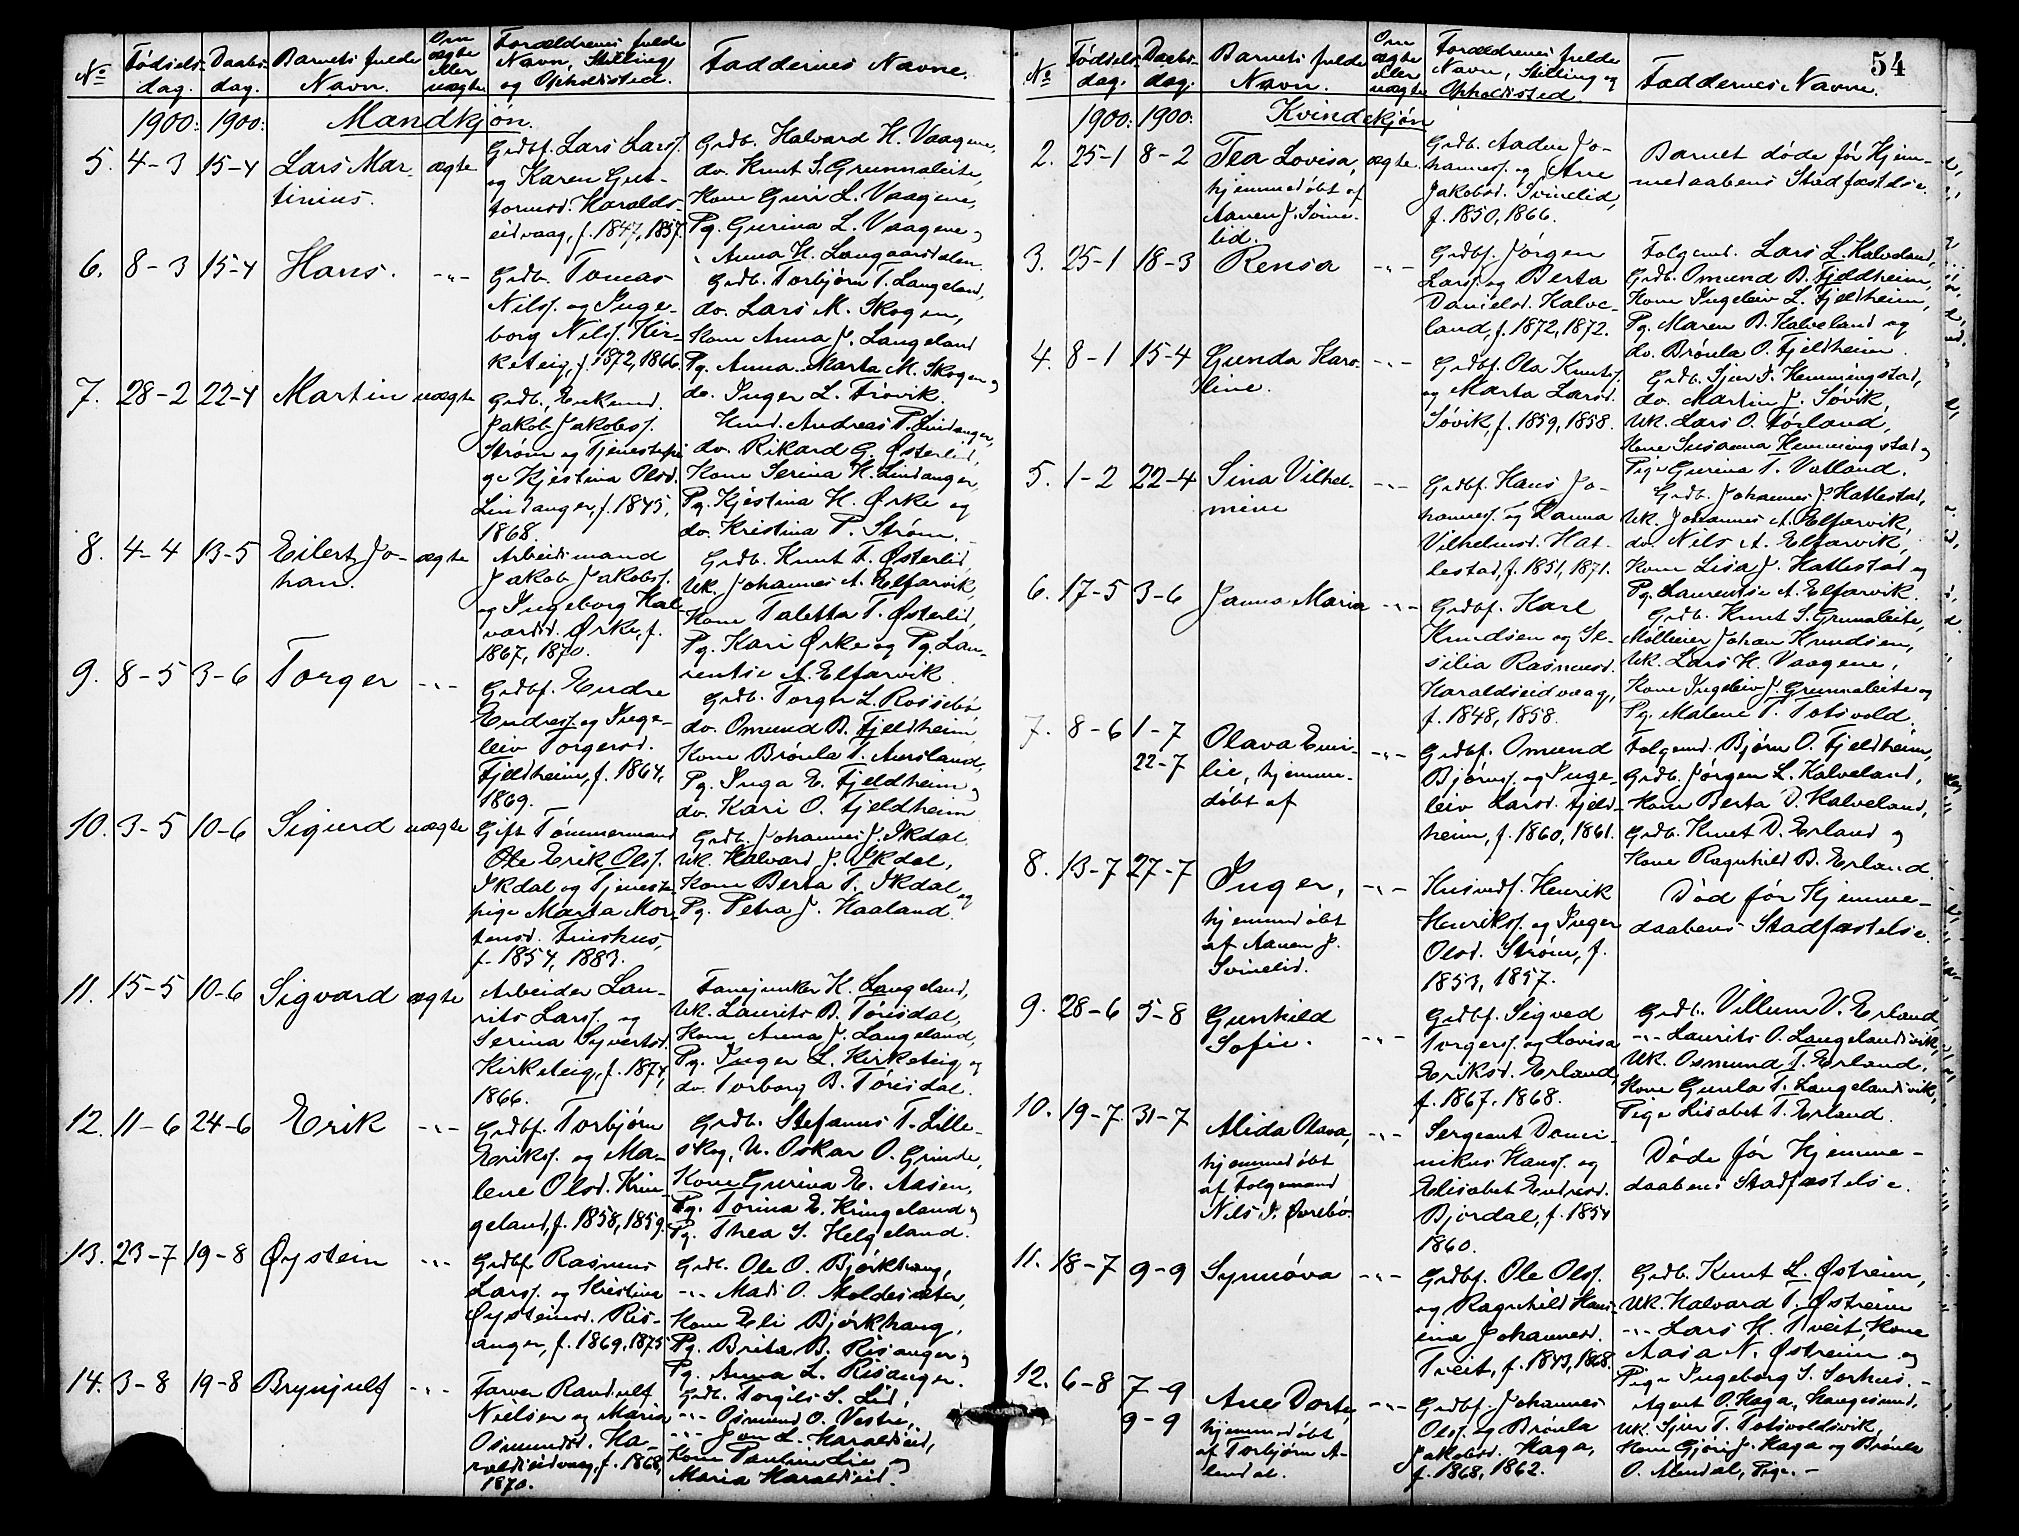 54
No
Fødselsdag.
Daabsdag.
Barnets fulde Navn.
Om ægte eller uægte
Forældrenes fulde Navn, Stilling og Opholdssted.
Faddernes Navne.
1900. 1900. Mandkjøn.
5. 4-3 15-4 Lars Mar-
tinius.
ægte
Grdbf. Lars Larss.
og Karen Gut-
tormsd. Haralds-
eidvaag, f. 1847, 1857.
Grdb. Halvard H. Vaagene,
do. Knut S. Grunnaleite,
Kone Guri L. Vaagene,
Pg. Gurina L. Vaagene og
" Anna H. Langaardsdalen.
6. 8-3 15-4 Hans. -"-
Grdb. Tomas
Nilss. og Inge-
borg Nilsd. Kir-
keteig, f. 1872, 1866.
Grdb. Torbjørn T. Langeland,
do. Lars M. Skogen,
Kone Anna J. Langeland
Pg. Anna Marta M. Skogen og
do. Inger L. Trovik.
7. 28-2 22-4 Martin uægte
Grdb., Enkemd.
Jakob Jakobss.
Strøm og Tjenestepi
ge Kjestina Olsd.
Lindanger, f. 1845,
1868.
Husd. Andreas P. Lindanger,
do. Rikard G. Østerlid,
Kone Serina H. Lindanger,
Pg. Kjestina H. Ørke og
do. Kristina P. Strøm.
8. 4-4 13-5 Eilert Jo-
han.
ægte
Arbeidsmand
Jakob Jakobss.
og Ingeborg Hal-
vardsd. Ørke, f.
1867, 1870.
Grdb. Knut T. Østerlid,
Uk. Johannes A. Elfarvik,
Kone Taletta T. Østerlid,
Pg. Kari Ørke og Pg. Lau-
rentse A. Elfarvik.
9. 8-5 3-6 Torger -"-
Grdbf. Endre
Endress. og Inge-
leiv Torgersd.
Fjeldheim, f. 1864,
1869.
Grdb. Torger L. Rossebø,
do. Omund B. Fjeldheim,
Kone Brønla T. Aursland,
Pg. Inga E. Fjeldheim og
do. Kari O. Fjeldheim
10. 3-5 10-6 Sigurd uægte
Gift Tømmermand
Ole Erik Olss.
Ikdal og Tjeneste
pige Marta Mor-
tensd. Finshus,
f. 1854, 1883.
Grdb. Johannes J. Ikdal
Uk. Halvard J. Ikdal,
Kone Berta T. Ikdal og
Pg. Petra J. Haaland.
11. 15-5 10-6 Sigvard ægte
Arbeider Lau-
rits Larss. og
Serina Syvertsd.
Kirketeig, f. 1874,
1866.
Fanejunker H. Langeland,
Uk. Laurits B. Tørisdal,
Kone Anna J. Langeland,
Pg. Inger L. Kirketeig og
do. Torborg B. Tørisdal.
12. 11-6 24-6 Erik -"-
Grdbf. Torbjørn
Eriks. og Ma-
lene Olsd. Krin-
geland, f. 1858, 1859.
Grdb. Stefanus T. Lille-
skog, U. Oskar O. Grinde,
Kone Gurina E. Aasen,
Pg. Torina E. Kringeland og
Pg. Thea S. Helgeland.
13. 23-7 19-8 Øystein -"-
Grdbf. Rasmus
Larss. og Kristina
Øysteinsd. Ris-
anger, f. 1869, 1875
Grdb. Ole O. Bjørkhaug,
-"- Mads O. Moldesæter,
Kone Eli Bjørkhaug,
Pg. Brita B. Risanger og
Pg. Anna L. Risanger.
14. 3-8 19-8 Brynjulf -"-
Farver Randulf
Nielsen og Maria
Osmundsd. Ha-
raldseidvaag, f. 1868,
1870.
Grdb. Torgils S. Lid,
-"- Osmund O. Vestre,
-"- Jon L. Haraldseid,
Kone Pauline Lie og
Maria Haraldseid.
No
Fødselsdag.
Daabsdag.
Barnets fulde Navn.
Om ægte eller uægte
Forældrenes fulde Navn, Stilling og Opholdssted.
Faddernes Navne.
1900. 1900. Kvindekjøn
2. 25-1 8-2 Tea Lovisa,
hjemmedøbt af
Aanen J. Svine-
lid.
ægte.
Grdb. Aaden Jo-
hanness. og Ane
Jakobsd. Svinelid,
f. 1850, 1866.
Barnet døde før Hjem-
medaabens Stadfæstelse.
3. 25-1 18-3 Rensa -"-
Grdbf. Jørgen
Larss. og Berta
Danielsd. Kalve-
land, f. 1872, 1872.
Folgemd. Lars L. Kalveland,
Grdb. Omund B. Fjeldheim,
Kone Ingeleiv L. Fjeldheim,
Pg. Maren B. Kalveland og
do. Brønla O. Fjeldheim.
4. 8-1 15-4 Gunda Karo-
line.
-"-
Grdbf. Ola Knuts.
og Marta Larsd.
Søvik, f. 1859, 1858.
Grdb. Sjur T. Hemmingstad,
do. Martin J. Søvik,
Uk. Lars O. Førland,
Kone Susanna Hemmingstad og
Pige Gurina T. Vatland.
5. 1-2 22-4 Sina Vilhel-
mine
-"-
Grdbf. Hans Jo-
hanness. og Hanna
Vilhelmsd. Hat-
lestad, f. 1851, 1871.
Grdb. Johannes J. Hatlestad,
Uk. Johannes A. Elfarvik,
do. Nils A. Elfarvik,
Kone Lisa J. Hatlestad og
Pg. Laurentse A. Elfarvik.
6. 17-5 3-6 Janna Maria -"-
Grdbf. Karl
Knudsen og Se-
silia Rasmusd.
Haraldseidvaag,
f. 1848, 1858.
Grdb. Knut S. Grunnaleite,
Mølleeier Johan Knudsen,
Uk. Lars H. Vaagene,
Kone Ingeleiv J. Grunnaleite og
Pg. Malene T. Totsvold.
7. 8-6 1-7
22-7
Olava Emi-
lie, hjemme-
døbt af
-"-
Grdbf. Omund
Bjørnss. og Inge-
leiv Larsd. Fjeld-
heim, f. 1860, 1861.
Folgemd. Bjørn O. Fjeldheim,
Grdb. Jørgen L. Kalveland,
Kone Berta D. Kalveland,
Grdb. Knut D. Erland og
Kone Ragnhild B. Erland.
8. 13-7 27-7 Inger,
hjemmedøbt
af Aanen J.
Svinelid.
-"-
Husmdf. Henrik
Henrikss. og Inger
Olsd. Strøm, f.
1853, 1857.
Død før Hjemme-
daabens Stadfæstelse.
9. 28-6 5-8 Gunhild
Sofie.
-"-
Grdbf. Sigvad
Torgerss. og Lovisa
Eriksd. Erland,
f. 1867, 1868.
Grdb. Villum V. Erland,
-"- Laurits O. Langelandsvik,
Uk. Osmund T. Erland.
Kone Gunla T. Langelandsvik,
Pige Lisabet T. Erland.
10. 19-7 31-7 Alida Olava,
hjemmedøbt
af Folgemand
Nils P. Øvrebø.
-"-
Sergeant Domi-
nikus Hanss. og
Elisabet Endresd.
Bjordal, f. 1854
1860.
Døde før Hjemme-
daabens Stadfæstelse.
11. 18-7 9-9 Synnøva -"-
Grdbf. Ole Olss.
og Ragnhild Hans-
ina Johannesd.
Tveit, f. 1843, 1868.
Grdb. Knut L. Østreim,
Uk. Halvard T. Østreim
-"- Lars H. Tveit, Kone
Aasa N. Østreim og
Pige Ingeborg S. Sørhus.-
12. 6-8 7-9
9-9
Ane Dorte,
hjemmedøbt
af Torbjørn A-
lendal.
-"-
Grdbf. Johannes
Olss. og Brønla
Jakobsd. Haga,
f. 1868, 1862.
Agent O. Haga, Haugesund,
Uk. Sjur T. Totsvoldsvik,
Kone Gjøri J. Haga og Brønla
O. Alendal, Pige.-